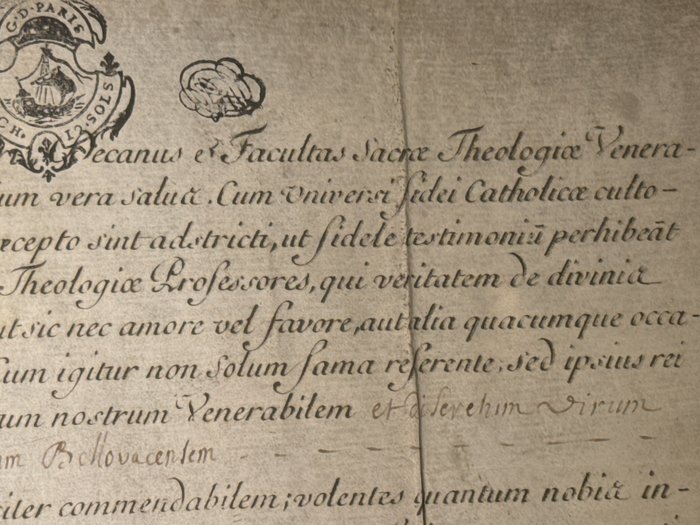 G.D. PARIS
SOLS
CH.
Decanus et Facultas Sacræ Theologiæ Venera-
um vera salus. Cum Universi fidei Catholicæ culto-
cepto sint adstricti, ut fidele testimoniũ perhibeãt
Theologiæ Professores, qui veritatem de divinis
ut sic nec amore vel favore, aut alia quacumque occa-
Cum igitur non solum fama referente, sed ipsius rei
um nostrum Venerabilem et discretum Virum
um Bellovacensem
citer commendabilem; volentes quantum nobis in-